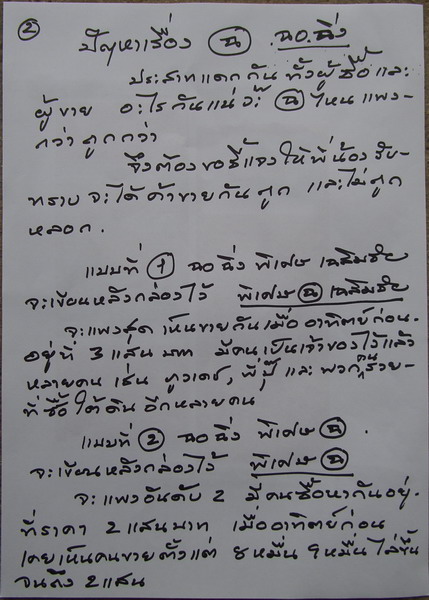 ②
ปัญหาเรื่อง ฉ ฉอ.ฉิ่ง
ประสาทแดกกัน ทั้งผู้ซื้อ และ
ผู้ขาย อะไรกันแน่วะ ฉ ไหนแพง-
กว่า ถูกกว่า
จึงต้องขอชี้แจงให้พี่น้องรับ-
ทราบ จะได้ค้าขายกันถูก และไม่ถูก
หลอก.
แบบที่ ① ฉอ ฉิ่ง พิเศษ เฉลิมชัย
จะเขียนหลังกล่องไว้ พิเศษ ฉ เฉลิมชัย
จะแพงสุด เห็นขายกันเมื่อ อาทิตย์ก่อน.
อยู่ที่ 3 แสน บาท มีคนเป็นเจ้าของไว้แล้ว
หลายคน เช่น ทูวเดช, พี่ปุ๊ และ พวกรวย-
ที่ซื้อ ใต้ดิน อีกหลายคน
แบบที่ ② ฉอ ฉิ่ง พิเศษ ฉ.
จะเขียนหลังกล่องไว้ พิเศษ ฉ
จะแพงอันดับ 2 มีคนซื้อหากันอยู่-
ที่ราคา 2 แสนบาท เมื่ออาทิตย์ก่อน
เคยเห็นคนขายตั้งแต่ 8 หมื่น 9 หมื่น ไล่ขึ้น
จนถึง 2 แสน